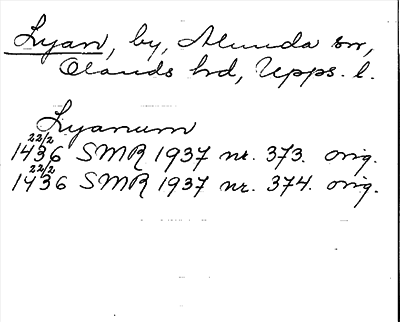 Lyan, by, Alunda sn,
Olands hd, Upps. l.
Lyanum
22/2
1436 SMR 1937 nr. 373. orig.
22/2
1436 SMR 1937 nr. 374. orig.